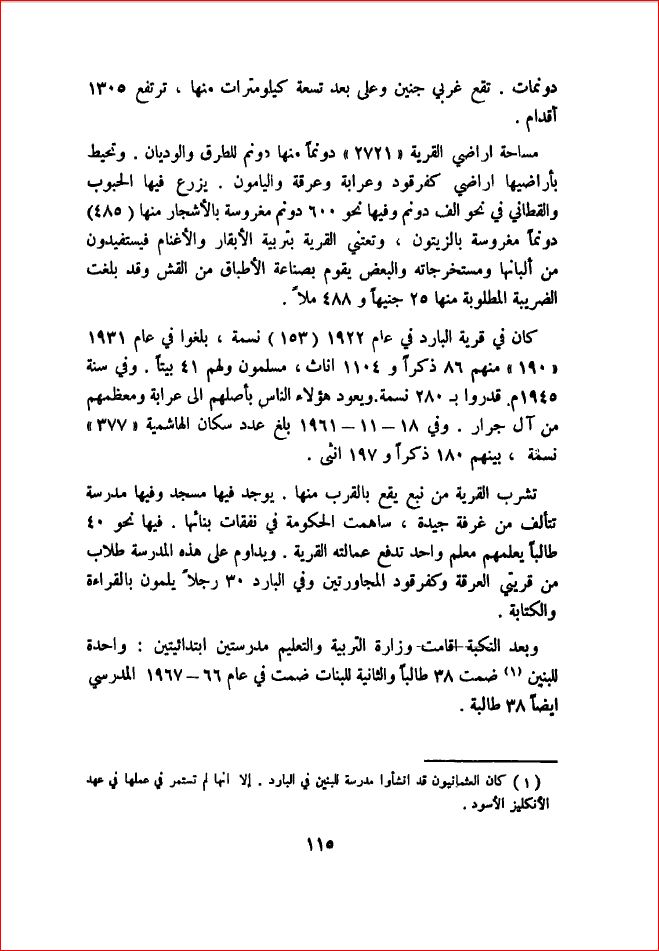 دونمات . تقع غربي جنين وعلى بعد تسعة كيلومترات منها ، ترتفع ١٣٠٥
أقدام .
مساحة اراضي القرية «٢٧٢١» دونماً منها دونم للطرق والوديان . وتحيط
بأراضيها اراضي كفرقود وعرابة وعرقة واليامون . يزرع فيها الحبوب
والقطاني في نحو الف دونم وفيها نحو ٦٠٠ دونم مغروسة بالأشجار منها (٤٨٥)
دونماً مغروسة بالزيتون ، وتعتني القرية بتربية الأبقار والأغنام فيستفيدون
من ألبانها ومستخرجاته والبعض يقوم بصناعة الأطباق من القش وقد بلغت
الضريبة المطلوبة منها ٢٥ جنيهاً و ٤٨٨ ملاً .
كان في قرية البارد في عام ١٩٢٢ (١٥٣) نسمة ، بلغوا في عام ١٩٣١
«١٩٠» منهم ٨٦ ذكراً و ١١٠٤ اناث ، مسلمون ولهم ٤١ بيتاً . وفي سنة
١٩٤٥م. قدروا بـ ٢٨٠ نسمة.ويعود هؤلاء الناس بأصلهم الى عرابة ومعظمهم
من آل جرار . وفي ١٨ – ١١ – ١٩٦١ بلغ عدد سكان الهاشمية «٣٧٧»
نسمة ، بينهم ١٨٠ ذكراً و ١٩٧ انثى .
تشرب القرية من نبع يقع بالقرب منها . يوجد فيها مسجد وفيها مدرسة
تتألف من غرفة جيدة ، ساهمت الحكومة في نفقات بنائها . فيها نحو ٤٠
طالباً يعلمهم معلم واحد تدفع عمالته القرية . ويداوم على هذه المدرسة طلاب
من قريتي العرقة وكفرقود المجاورتين وفي البارد ٣٠ رجلاً يلمون بالقراءة
والكتابة .
وبعد النكبة اقامت وزارة التربية والتعليم مدرستين ابتدائيتين : واحدة
للبنين (١) ضمت ٣٨ طالباً والثانية للبنات ضمت في عام ٦٦ – ١٩٦٧ المدرسي
ايضاً ٣٨ طالبة .
(١) كان العثمانيون قد انشأوا مدرسة للبنين في البارد . إلا انها لم تستمر في عملها في عهد
الأنكليز الأسود .
١١٥